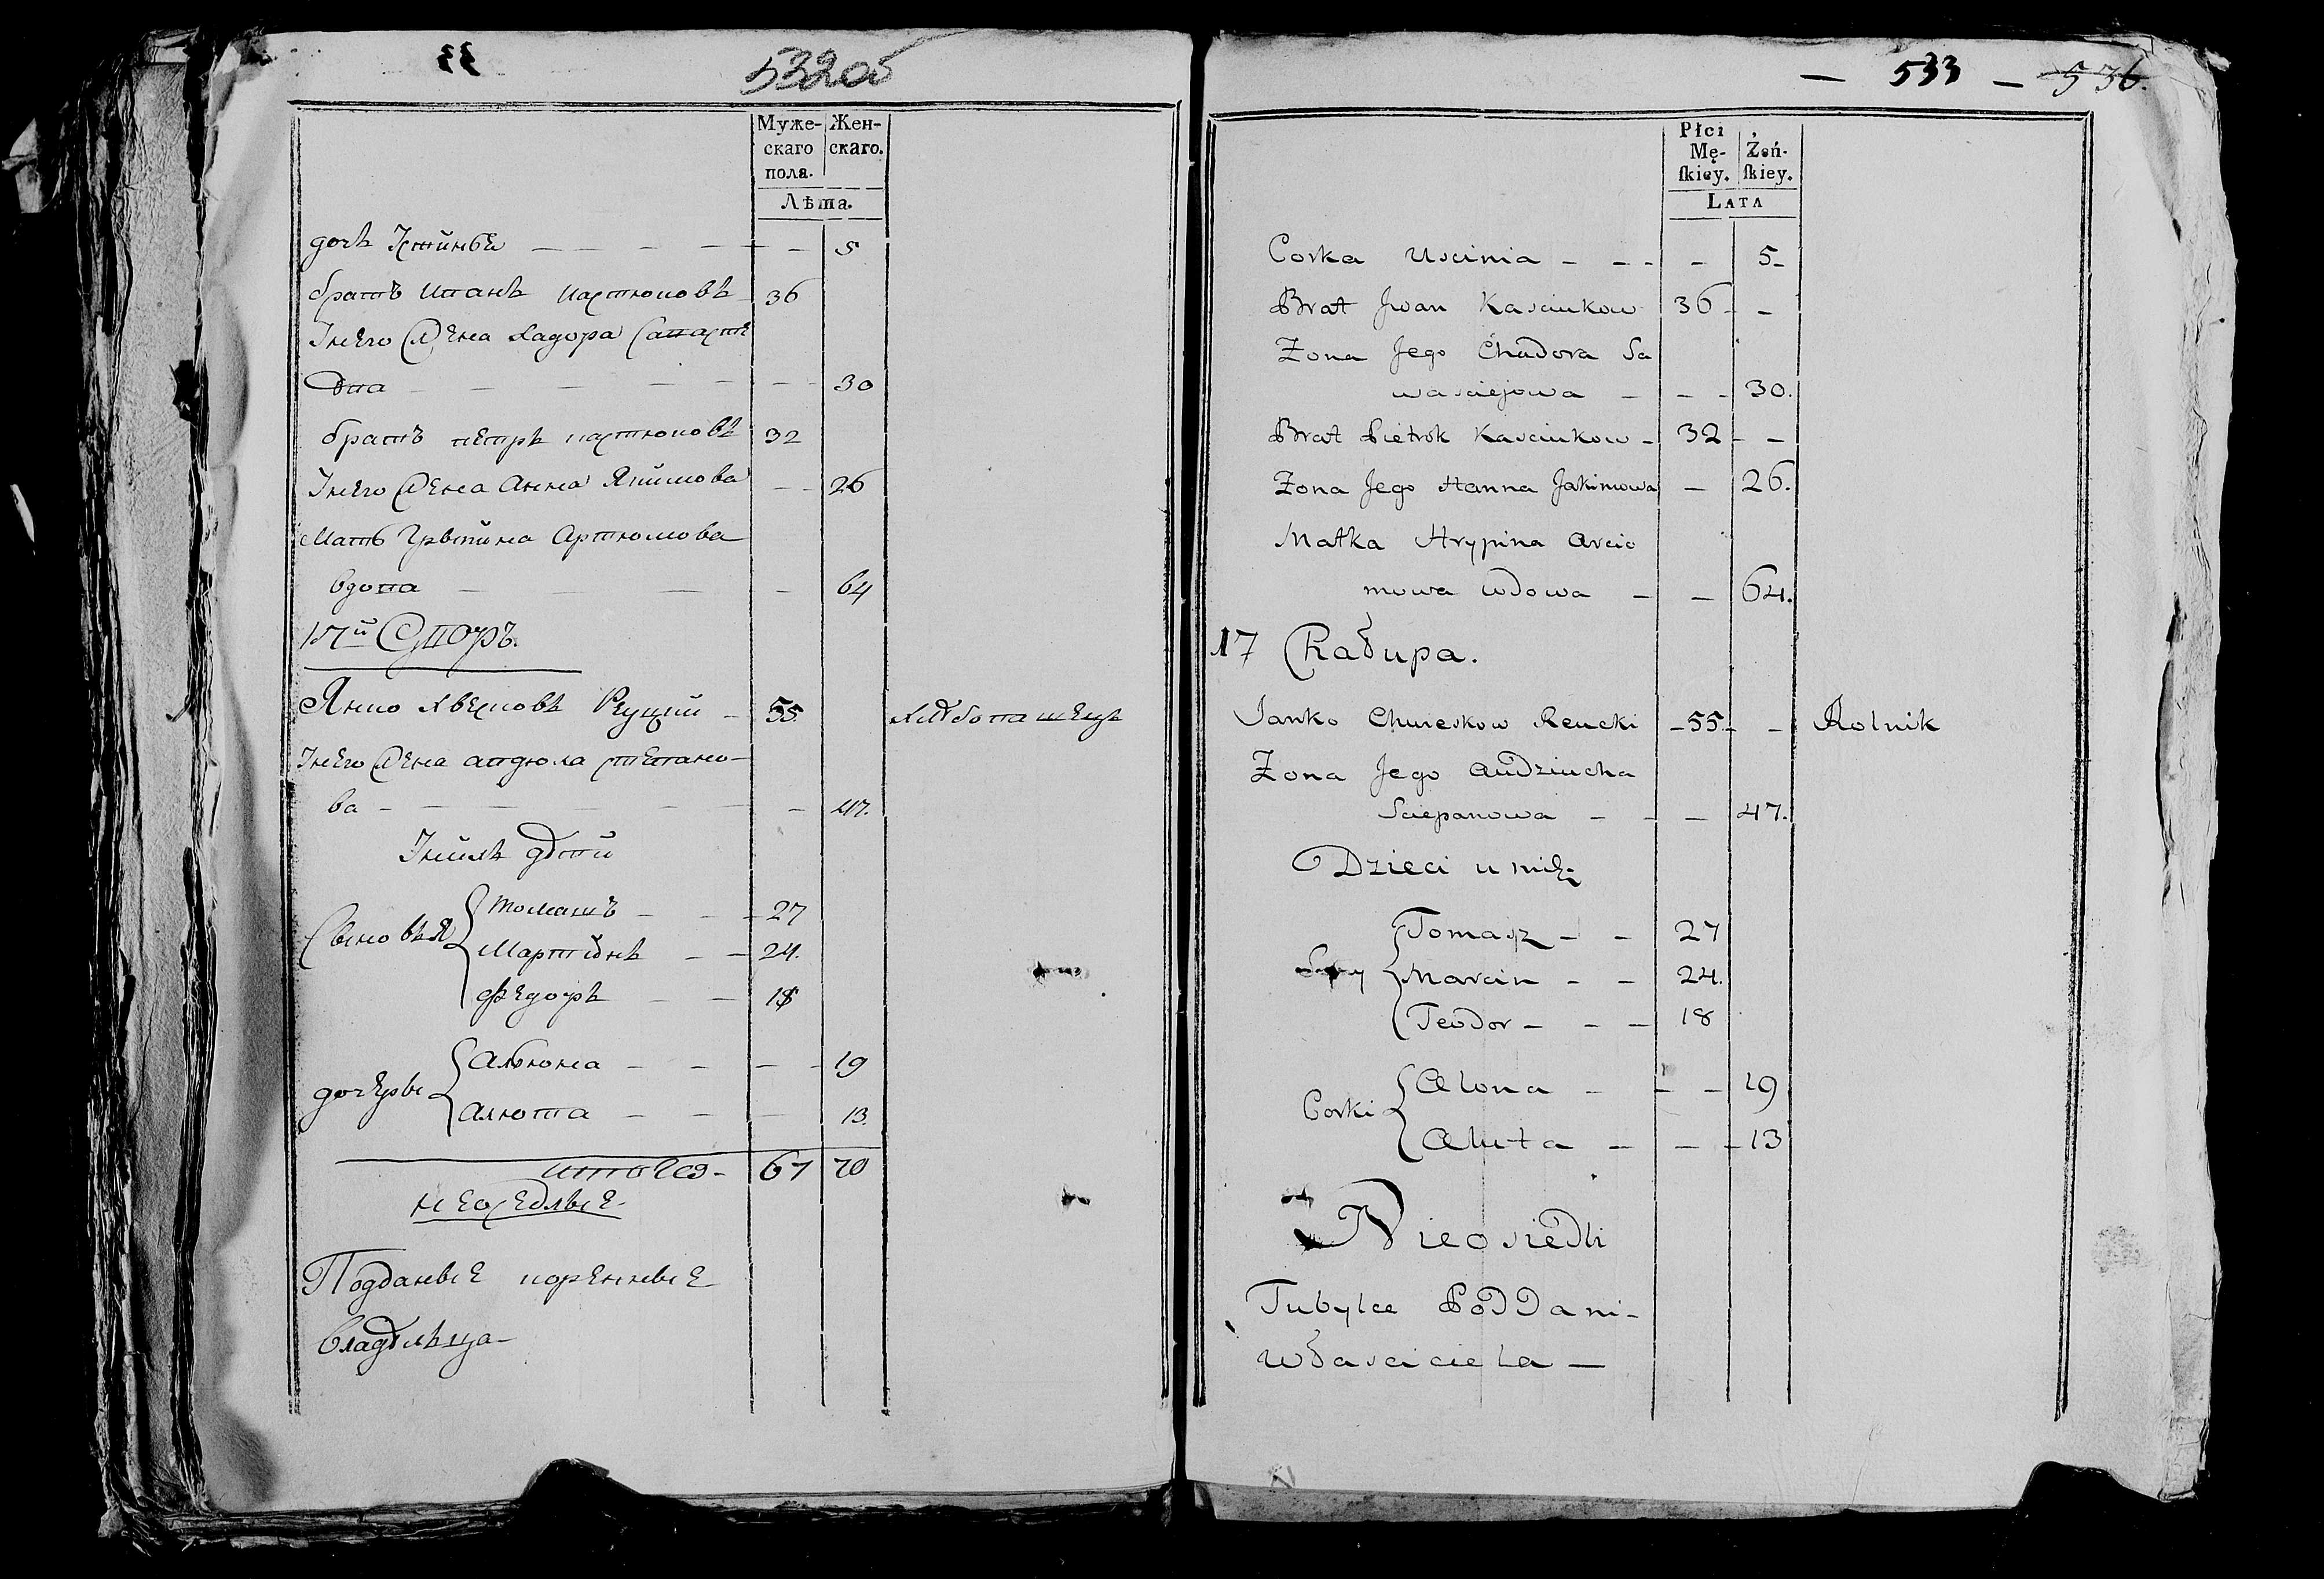 55
532об
Муже-
скаго
пола.
Жен-
скаго.
Лѣта.
дочь Устинья — — — — — 5
братъ иванъ кастюковъ 36
Унего жена хадора саваste
ева — — — — — — 30
братъ петръ кастюковъ 32
Унего жена анна Якимова — — 26
Мать грыпина Артюмова
вдова — — — — 64
17й Дворъ.
Янко хвесковъ Реуцкий — 55 хлѣбопашецъ
Унего жена авдюла степано-
ва — — — — — 47.
Унихъ дѣти
Томашъ — — — 27
Сыновья Мартинъ — — 24.
Федоръ — — 18
Алюона — — — — 19
дочеры
Алюта — — — 13.
итого — 67 70
неоседлые.
Подданые коренные
владѣльца —
— 533 — 536.
Płci
Mę-
ſkiey.
Żeń-
ſkiey.
LATA
Corka Uscinia — — — — 5 —
Brat Jwan Kasciukow 36 — —
Zona Jego Chadora Sa
wasciejowa — — — 30.
Brat Pietrok Kasciukow — 32 — —
Zona Jego Hanna Jakimowa — 26.
Matka Hrypina Arcio
mowa wdowa — — 64.
17 Chałupa.
Janko Chwieskow Reucki — 55 — — Rolnik
Zona Jego Audziucha
Sciepanowa — — — 47.
Dzieci u nich
Tomasz — — 27
Syny Marcin — — 24.
Teodor — — — 18
Alona — — — 19
Corki
Aluta — — — 13
Nieosiedli
Tubylce Poddani —
właściciela —